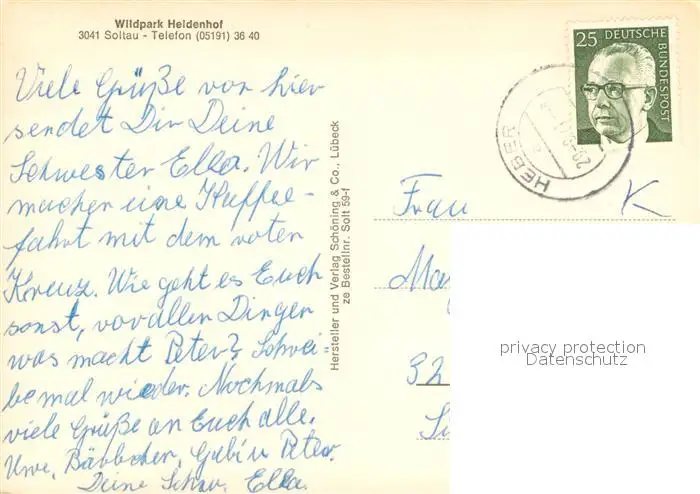 Wildpark Heidenhof
3041 Soltau - Telefon (05191) 36 40
Viele Grüße von hier
sendet Dir Deine
Schwester Ella. Wir
machen eine Kaffee-
fahrt mit dem roten
Kreuz. Wie geht es Euch
sonst, vor allen Dingen
was macht Peter? Schrei-
be mal wieder. Nochmals
viele Grüße an Euch alle.
Uwe, Bärbchen, Gabi u Peter.
Deine Schw. Ella.
Hersteller und Verlag Schöning & Co., Lübeck
ze Bestellnr. Solt 59-f
25 DEUTSCHE
BUNDESPOST
Frau
K
32
privacy protection
Datenschutz